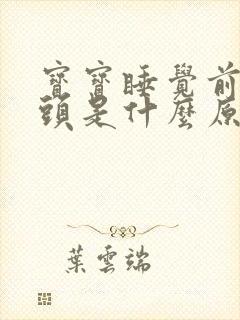 寶寶睡覺前
頭是什麼原
葉雲端